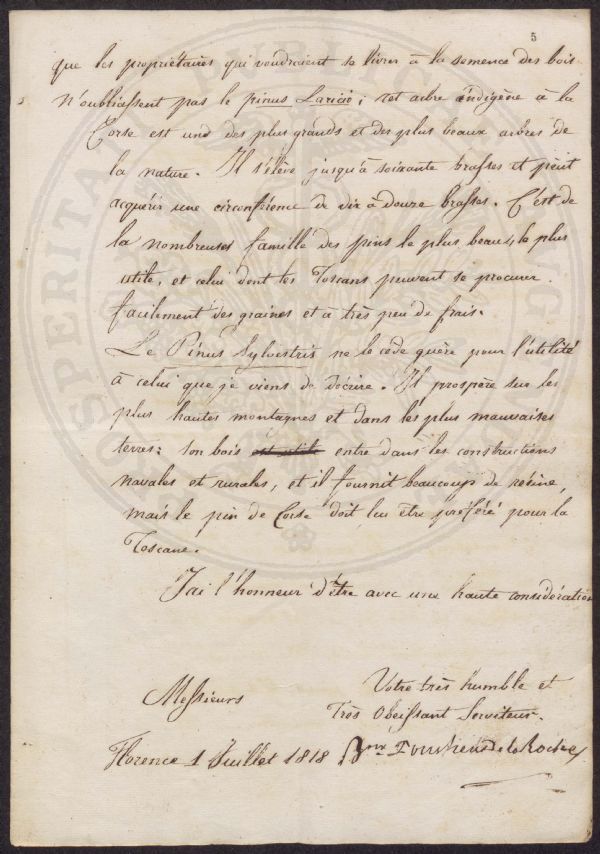 5
que les propriétaires qui voudraient se livrer à la semence des bois
n'oubliassent pas le pinus Laricio; cet arbre indigène à la
Corse est und des plus grands et des plus beaux arbres de
la nature. Il s'élève jusqu'à soixante brasses et peut
acquérir une circonférence de dix à douze brasses. C'est de
la nombreuses famille des pins le plus beau, le plus
utile, et celui dont les Toscans peuvent se procurer
facilement des graines et à très peu de frais.
Le Pinus Sylvestris ne le cède guère pour l'utilité
à celui que je viens de décrire. Il prospère sur les
plus hautes montagnes et dans les plus mauvaises
terres: son bois est utile entre dans les constructions
navales et rurales, et il fournit beaucoup de résine,
mais le pin de Corse doit lui être préféré pour la
Toscane.
J'ai l'honneur d'être avec une haute considération
Votre très humble et
Messieurs
Très Obeissant Serviteur.
Florence 1 Juillet 1818 de la Roche
PROSPERITATI